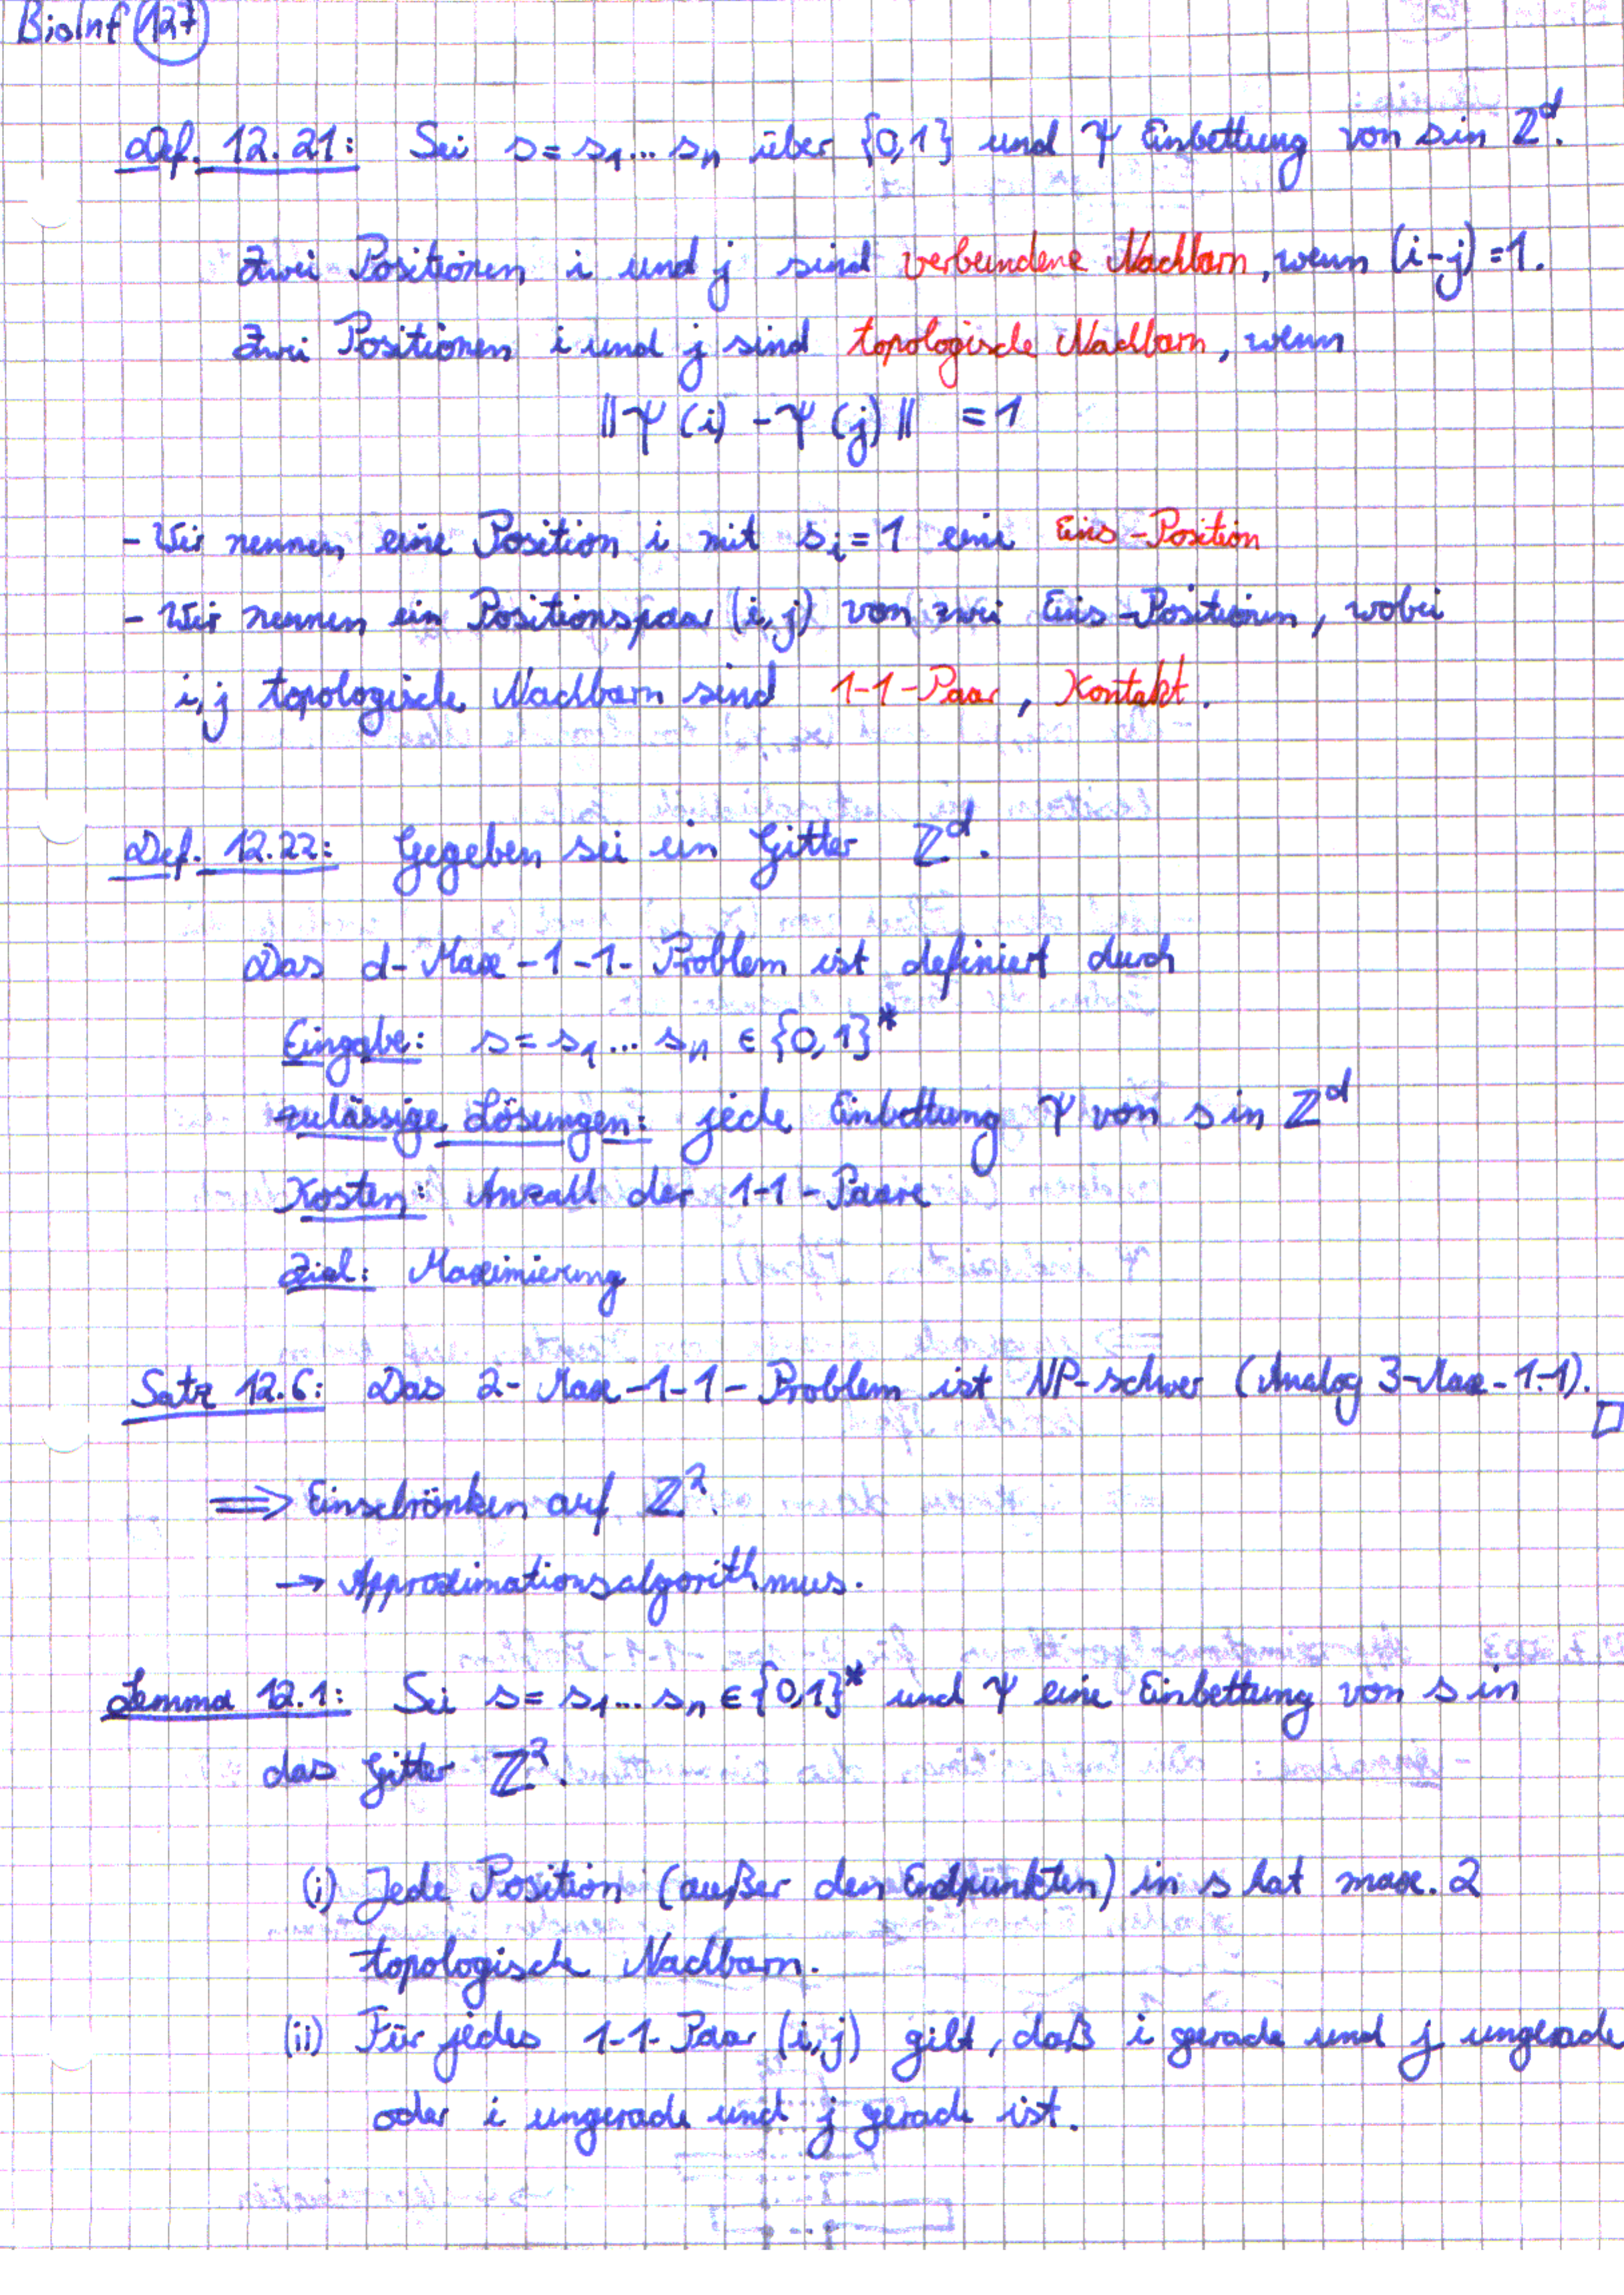 BioInf 127
Def. 12.21: Sei s = s₁... sₙ über {0,1} und Ψ Einbettung von s in ℤᵈ.
Zwei Positionen i und j sind verbundene Nachbarn, wenn (i-j) = 1.
Zwei Positionen i und j sind topologische Nachbarn, wenn
||Ψ(i) - Ψ(j)|| = 1
- Wir nennen eine Position i mit sᵢ = 1 eine Eins-Position
- Wir nennen ein Positionspaar (i,j) von zwei Eins-Positionen, wobei
i,j topologische Nachbarn sind 1-1-Paar, Kontakt.
Def. 12.22: Gegeben sei ein Gitter ℤᵈ.
Das d-Max-1-1-Problem ist definiert durch
Eingabe: s = s₁... sₙ ∈ {0,1}*
zulässige Lösungen: jede Einbettung Ψ von s in ℤᵈ
Kosten: Anzahl der 1-1-Paare
Ziel: Maximierung
Satz 12.6: Das 2-Max-1-1-Problem ist NP-schwer (Analog 3-Max-1-1). □
⟹ Einschränken auf ℤ².
→ Approximationsalgorithmus.
Lemma 12.1: Sei s = s₁... sₙ ∈ {0,1}* und Ψ eine Einbettung von s in
das Gitter ℤ².
(i) Jede Position (außer den Endpunkten) in s hat max. 2
topologische Nachbarn.
(ii) Für jedes 1-1-Paar (i,j) gilt, daß i gerade und j ungerade
oder i ungerade und j gerade ist.